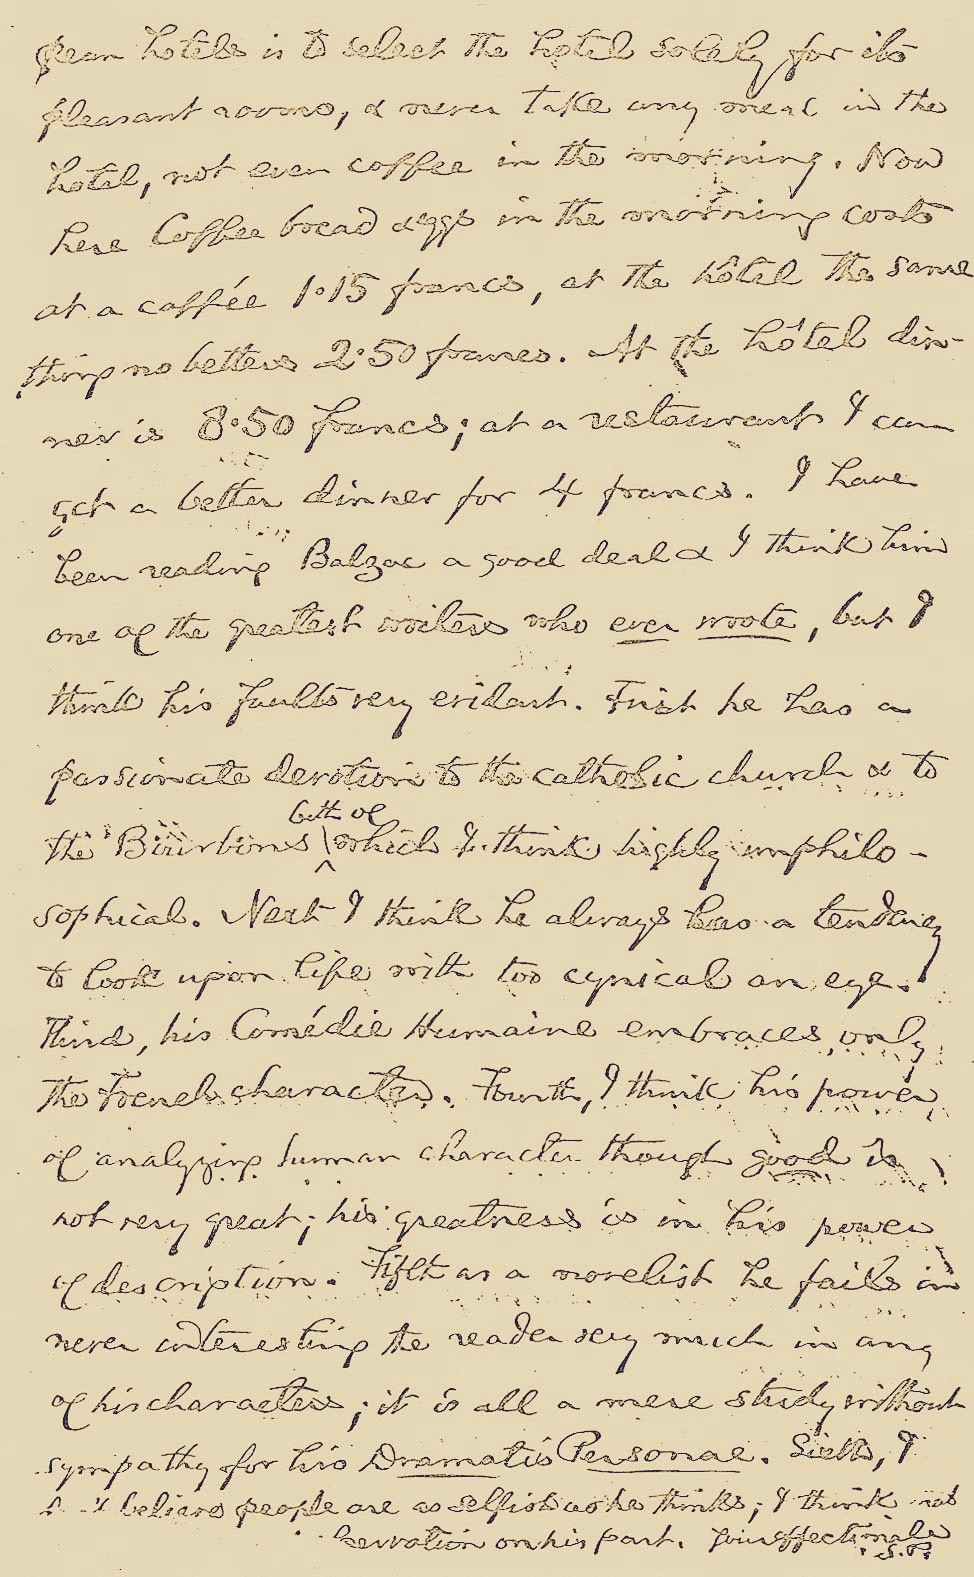 pean hotels is to select the hotel solely for its
pleasant rooms, & never take any meal in the
hotel, not even coffee in the morning. Now
here Coffee bread & eggs in the morning costs
at a caffée 1·15 francs, at the hôtel the same
thing no better 2·50 francs. At the hôtel din-
ner is 8·50 francs; at a restaurant I can
get a better dinner for 4 francs. I have
been reading Balzac a good deal & I think him
one of the greatest writers who ever wrote, but I
think his faults very evident. First he has a
passionate devotion to the catholic church & to
the Bourbons both of which I think highly unphilo-
sophical. Next I think he always has a tendency
to look upon life with too cynical an eye.
Third, his Comédie Humaine embraces only
the French character. Fourth, I think his power
of analyzing human character though good is
not very great; his greatness is in his power
of description. Fifth as a novelist he fails in
never interesting the reader very much in any
of his characters; it is all a mere study without
sympathy for his Dramatis Personae. Sixth, I
believe people are as selfish as he thinks; I think
servation on his part. Your affectionate
S.P.